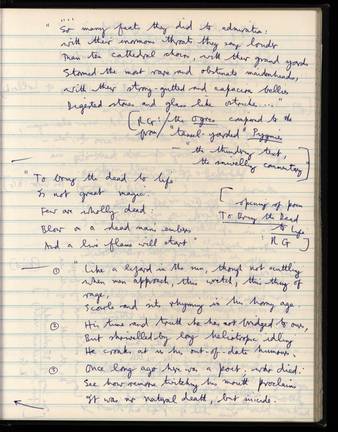 " ....
So many feats they did to admiration:
With their enormous throats they sang louder
Than ten cathedral choirs, with their grand yards
Stormed the most rare and obstinate maidenheads,
With their strong-gutted and capacious bellies
Digested stones and glass like ostriches ..."
[RG: the Ogres compared to the
from "tamel-yarded" Pygmies
— "the thundering text,
the snivelling commentary"]
"To bring the dead to life
Is not great magic.
Few are wholly dead:
Blow on a dead man's embers
And a live flame will start"
[opening of poem
To Bring the Dead
to Life
RG]
① "Like a lizard in the sun, though not scuttling
When men approach, this wretch, this thing of
rage,
Scowls and sits rhyming in his horny age.
② His time and truth he has not bridged to ours,
But shrivelled by long heliotropic idling
He croaks at us his out-of-date humours.
③ Once long ago here was a poet: who died.
See how remorse twitching his mouth proclaims
It was no natural death, but suicide.